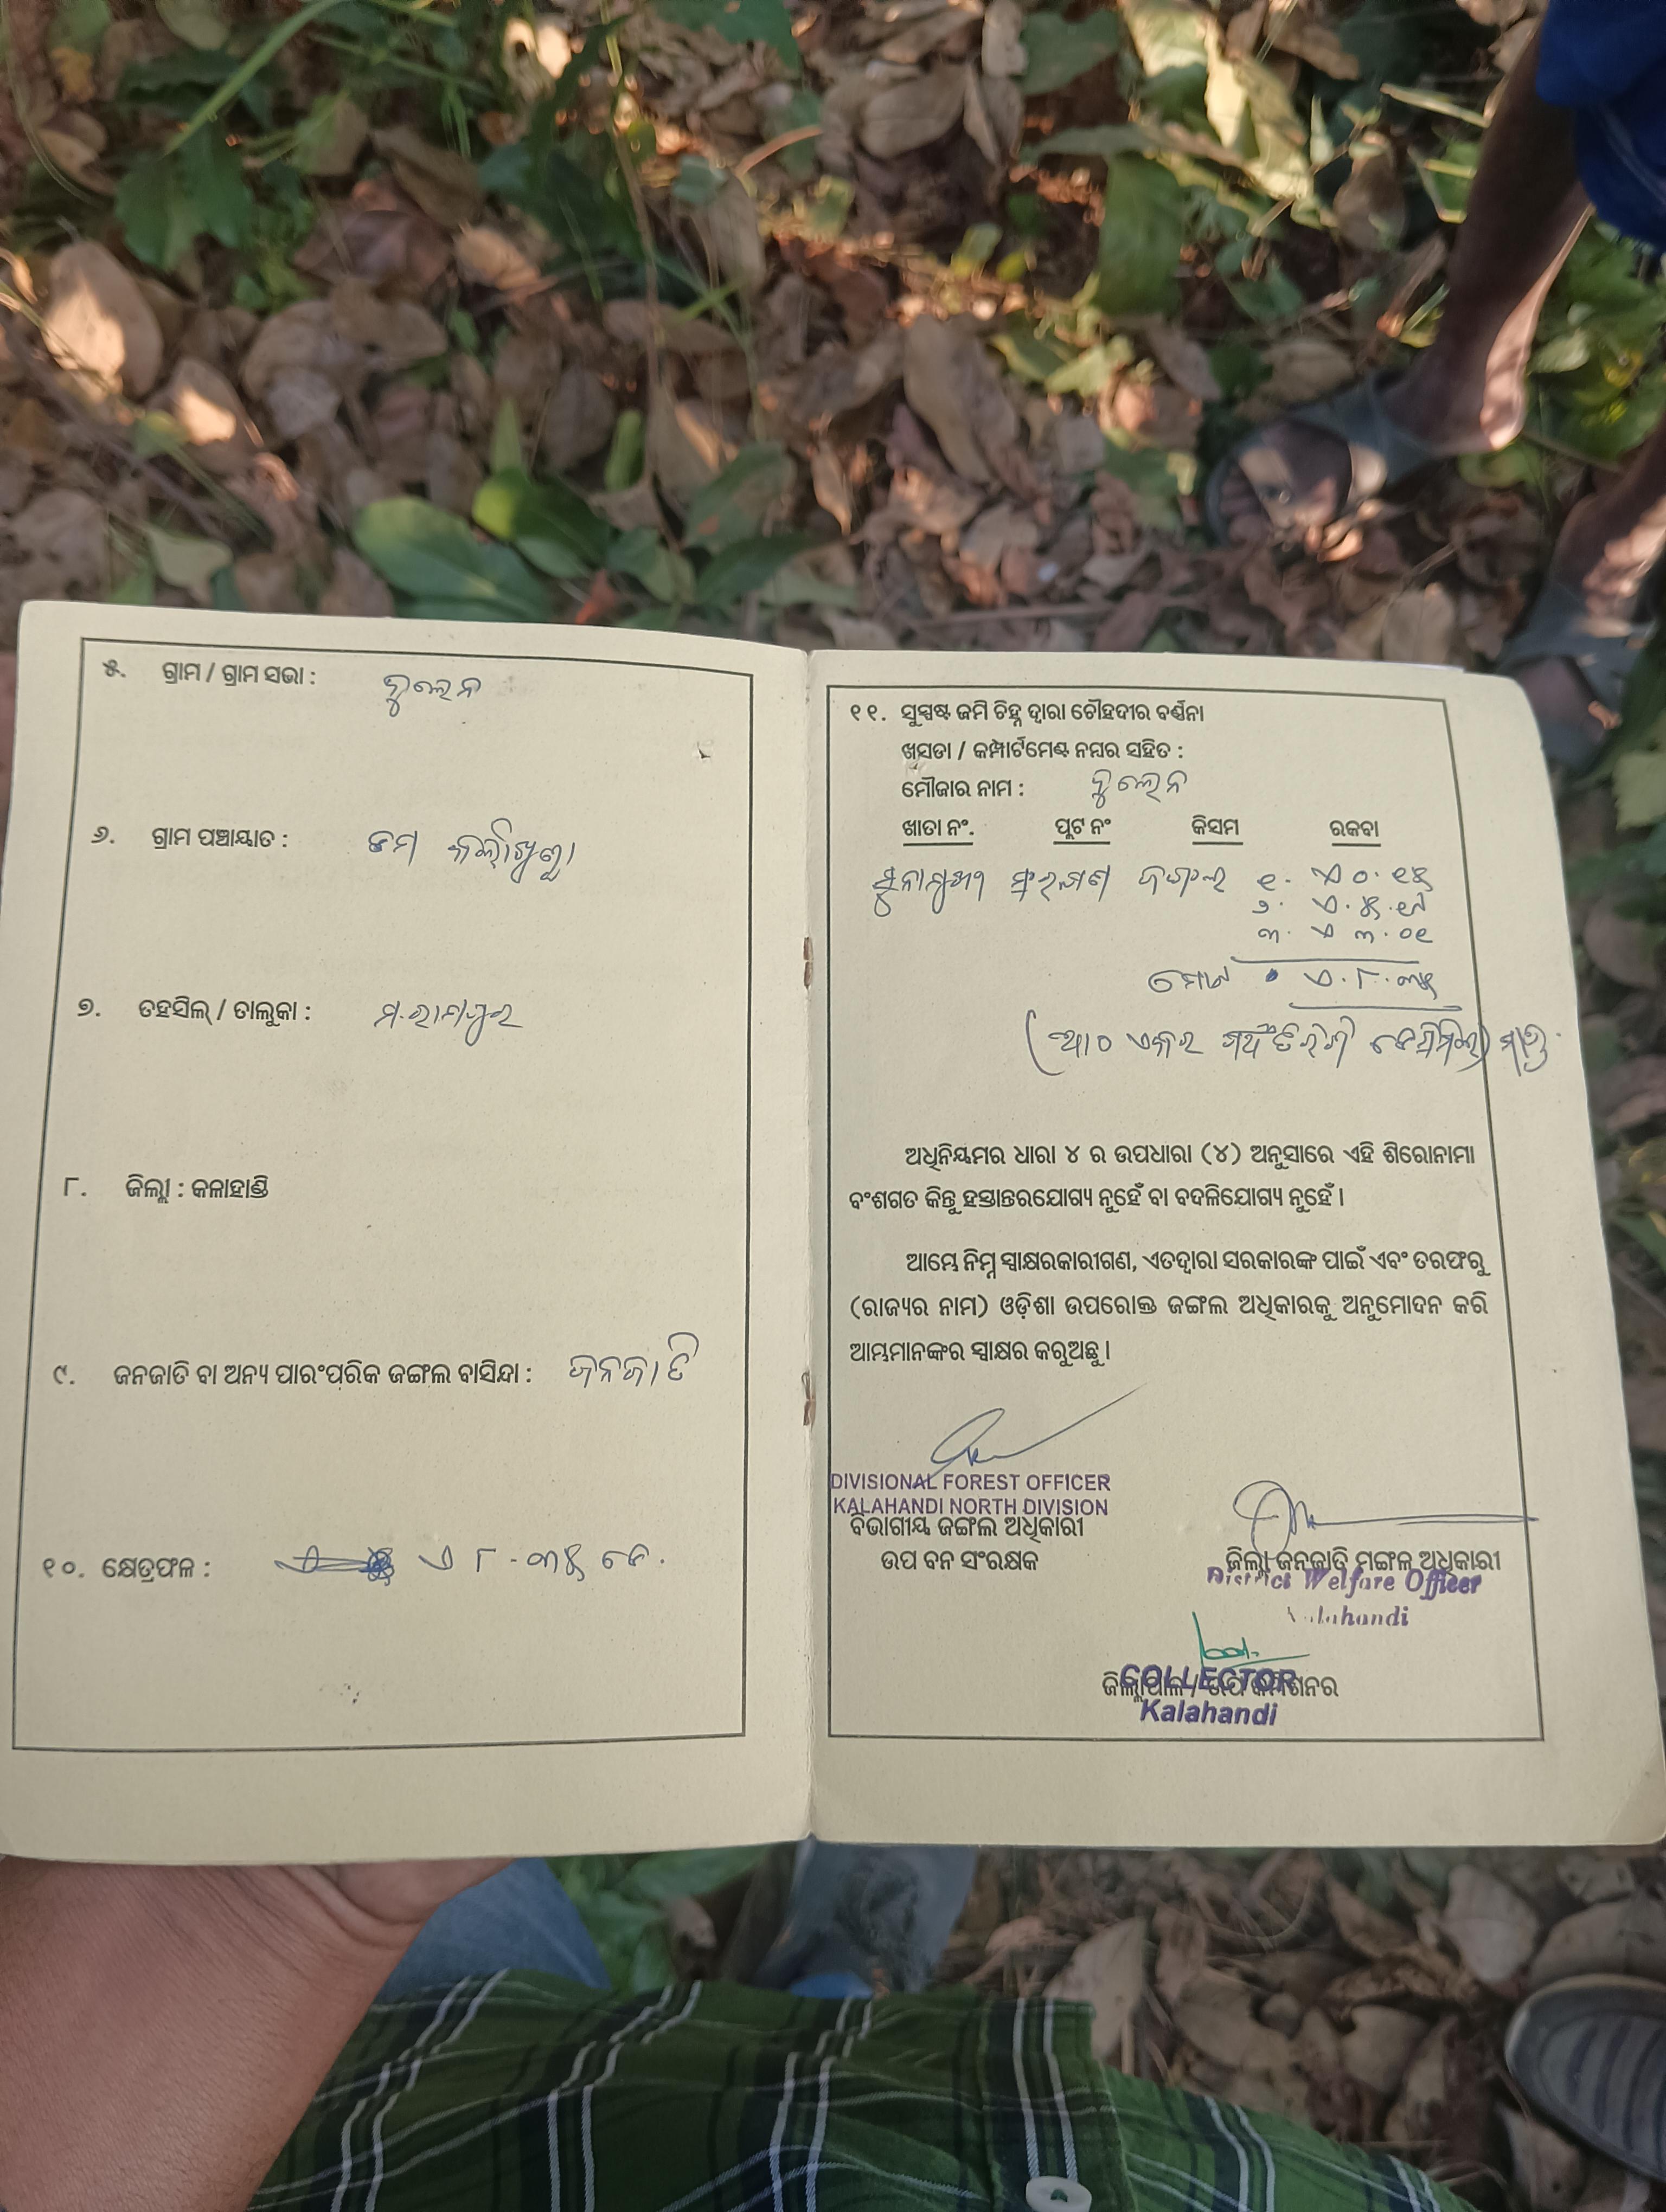 ୫. ଗ୍ରାମ / ଗ୍ରାମ ସଭା :
୬. ଗ୍ରାମ ପଞ୍ଚାୟାତ :
୭. ତହସିଲ୍ / ତାଲୁକା : ମ.ରାମପୁର
୮. ଜିଲ୍ଲା : କଳାହାଣ୍ଡି
୯. ଜନଜାତି ବା ଅନ୍ୟ ପାରଂପରିକ ଜଙ୍ଗଲ ବାସିନ୍ଦା : ଜନଜାତି
୧୦. କ୍ଷେତ୍ରଫଳ : ଏ ୮.୩୫ ଡେ.
୧୧. ସୁସ୍ପଷ୍ଟ ଜମି ଚିହ୍ନ ଦ୍ୱାରା ଚୌହଦୀର ବର୍ଣ୍ଣନା
ଖସଡା / କମ୍ପାର୍ଟମେଣ୍ଟ ନମ୍ବର ସହିତ :
ମୌଜାର ନାମ :
ଖାତା ନଂ. ପ୍ଲଟ ନଂ କିସମ ରକବା
ସଂରକ୍ଷଣ ଜଙ୍ଗଲ ୧. ଏ ୦.୧୫
୨. ଏ.୫.୧୯
୩. ଏ ୩.୦୧
ମୋଟ ଏ.୮.୩୫
(ଆଠ ଏକର ପଇଁତିରିଶି ଡେସିମିଲ) ମାତ୍ର
ଅଧିନିୟମର ଧାରା ୪ ର ଉପଧାରା (୪) ଅନୁସାରେ ଏହି ଶିରୋନାମା
ବଂଶଗତ କିନ୍ତୁ ହସ୍ତାନ୍ତରଯୋଗ୍ୟ ନୁହେଁ ବା ବଦଳିଯୋଗ୍ୟ ନୁହେଁ ।
ଆମ୍ଭେ ନିମ୍ନ ସ୍ୱାକ୍ଷରକାରୀଗଣ, ଏତଦ୍ୱାରା ସରକାରଙ୍କ ପାଇଁ ଏବଂ ତରଫରୁ
(ରାଜ୍ୟର ନାମ) ଓଡ଼ିଶା ଉପରୋକ୍ତ ଜଙ୍ଗଲ ଅଧିକାରକୁ ଅନୁମୋଦନ କରି
ଆମ୍ଭମାନଙ୍କର ସ୍ୱାକ୍ଷର କରୁଅଛୁ ।
DIVISIONAL FOREST OFFICER
KALAHANDI NORTH DIVISION
ବିଭାଗୀୟ ଜଙ୍ଗଲ ଅଧିକାରୀ
ଉପ ବନ ସଂରକ୍ଷକ
ଜିଲ୍ଲା ଜନଜାତି ମଙ୍ଗଳ ଅଧିକାରୀ
District Welfare Officer
Kalahandi
COLLECTOR
ଜିଲ୍ଲାପାଳ / ଉପ କମିଶନର
Kalahandi